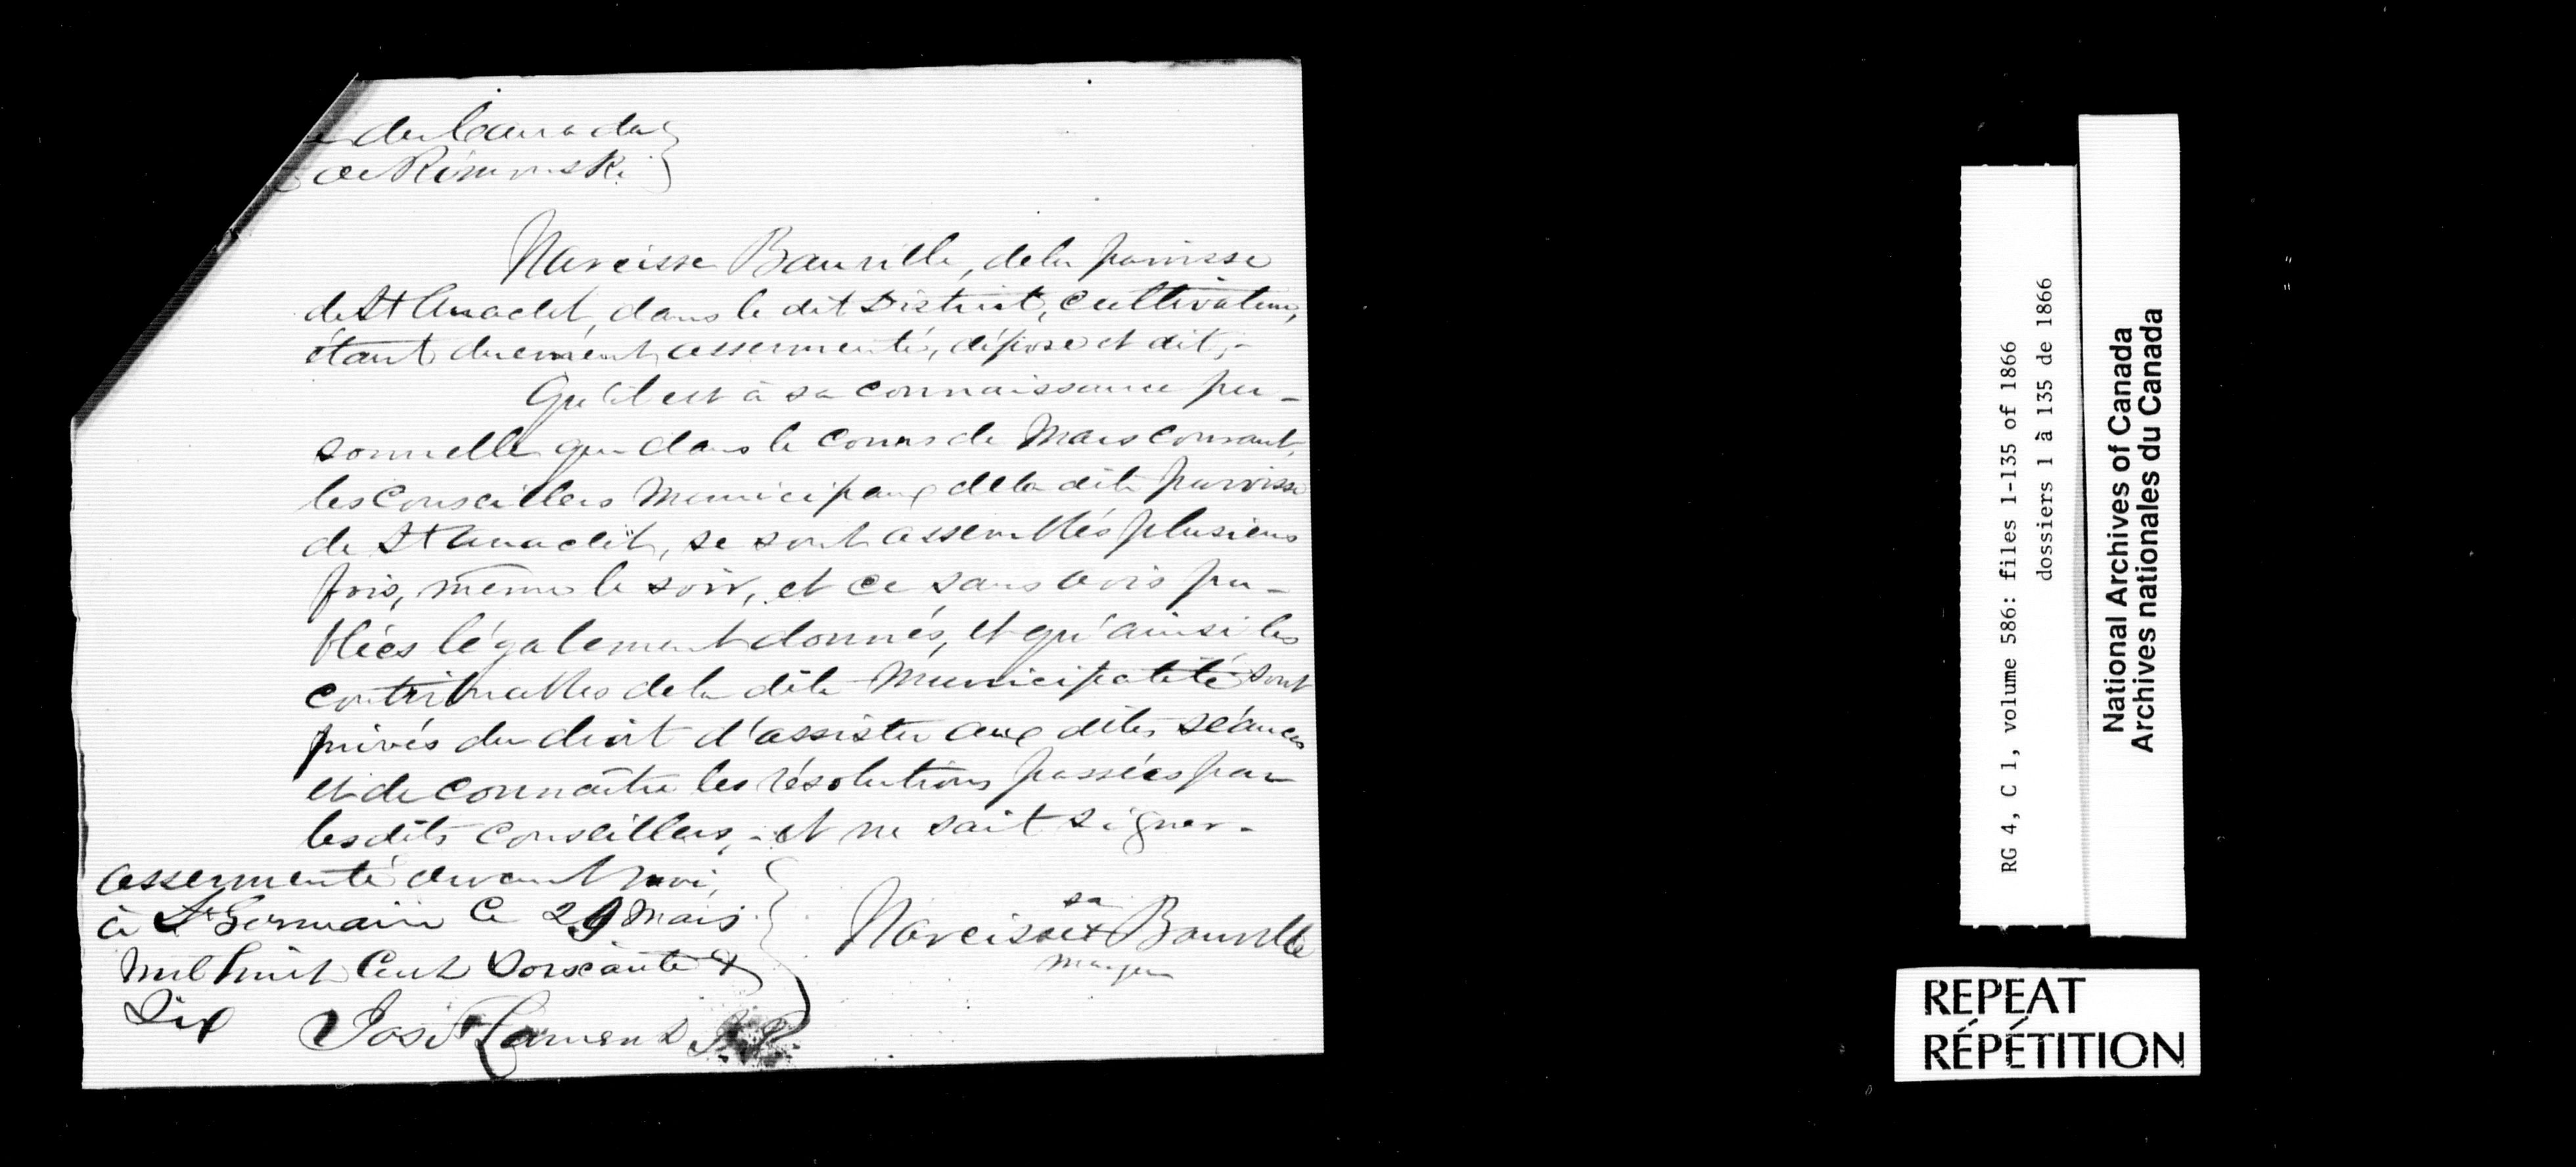 du Canada }
de Rimouski }
Narcisse Banville, de la paroisse
de St Anaclet, dans le dit District, cultivateur,
étant duement assermenté, dépose et dit,-
Qu'il est à sa connaissance per-
sonnelle que dans le cours de Mars courant,
les Conseillers Municipaux de la dite paroisse
de St Anaclet, se sont assemblés plusieurs
fois, même le soir, et ce sans avis pu-
bliés légalement donnés, et qu'ainsi les
contribuables de la dite Municipalité sont
privés du droit d'assister aux dites séances
et de connaître les résolutions passées par
les dits conseillers,- et ne sait signer-
assermenté devant moi,
à St Germain Ce 29 Mars
mil huit Cent Soixante &
Six
sa
Narcisse X Banville
marque
RG 4, C 1, volume 586: files 1-135 of 1866
dossiers 1 à 135 de 1866
National Archives of Canada
Archives nationales du Canada
REPEAT
RÉPÉTITION